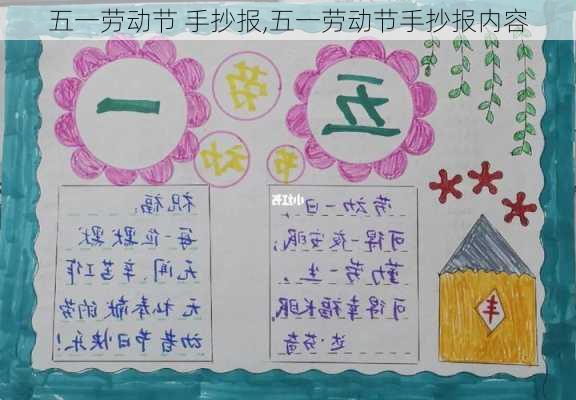 五一劳动节 手抄报,五一劳动节手抄报内容
五一
劳动节
劳动一日,
可得一夜安眠;
勤劳一生,
可得幸福长眠
达·芬奇
祝福:
每一位默默
无闻、辛苦工作
无私奉献的劳
动者节日快乐!
丰
小红书